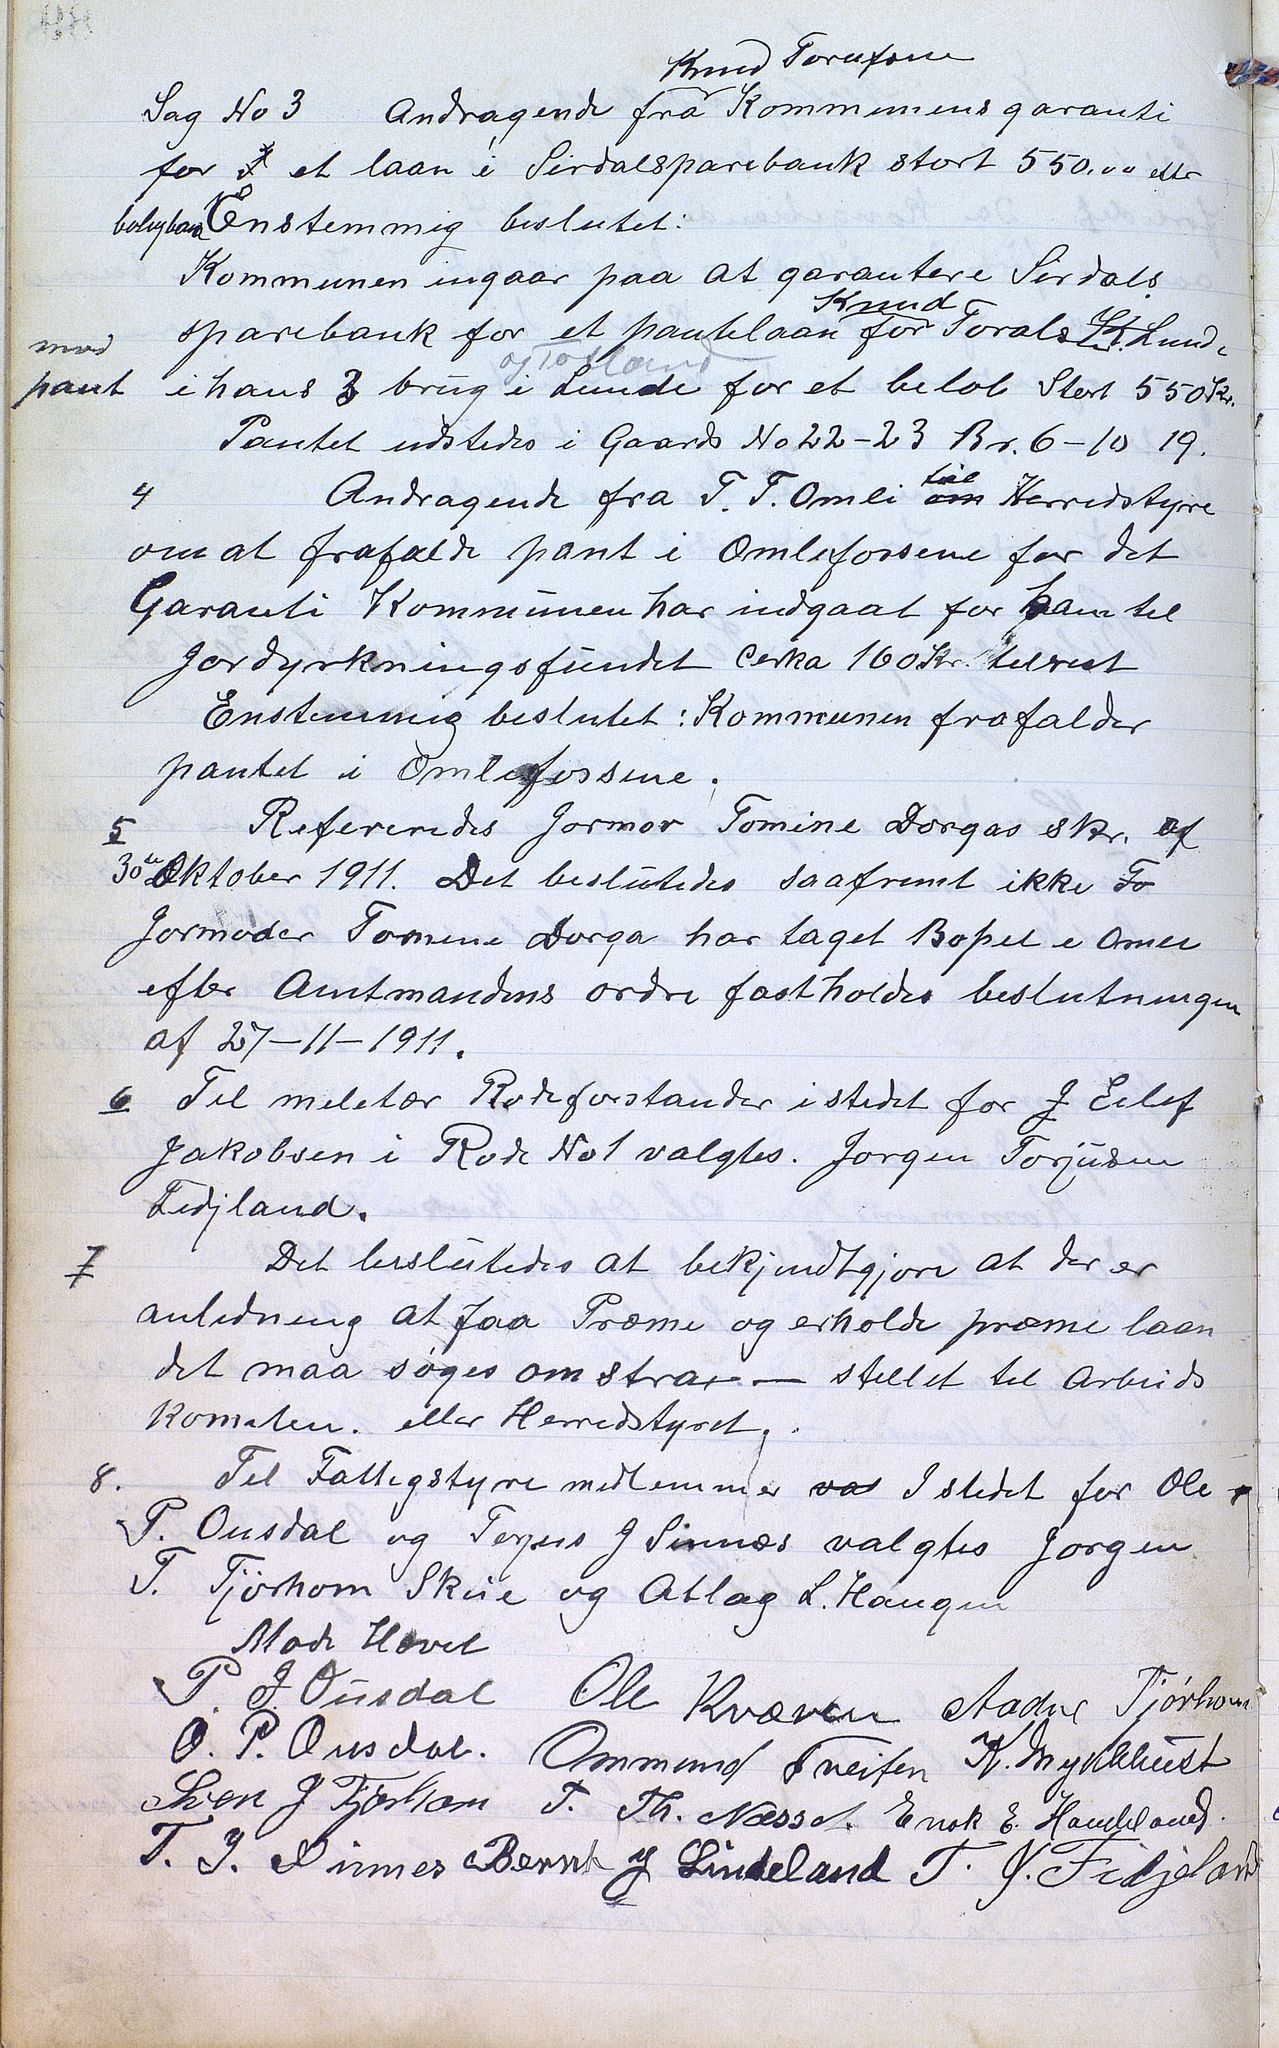 Knud Torufsne
Sag No 3 Andragende fra Kommunens garanti
for et laan i Sirdalsparebank stort 550.00 efter
Enstemmig beslutet:
Kommunen ingaar paa at garantere Sirdals
Knud
sparebank for et pantelaan for Torals Lunde
og Tofteland
mod
pant i hans 3 brug i Lunde for et beløb Stort 550 Kr.
Pantet udstedes i Gaards No 22-23 Br. 6-10 19.
til
4 Andragende fra T. T. Omli om Herredstyre
om at frafalde pant i Omlifossene for det
Garanti Kommunen har indgaat for ham til
Jordyrkningsfundet cerka 160 Kr. tilrest
Enstemmig beslutet: Kommunen frafalder
pantet i Omlifossene.
5 Refereredes Jormor Tomine Dorgas skr. af
30te Oktober 1911. Det beslutedes saafremt ikke To
Jormoder Tomene Dorga har taget Bopel i Omli
efter Amtmandens ordre fastholdes beslutningen
af 27-11-1911.
6 Til meletær Rodeforstander istedet for J Eilef
Jakobsen i Rode No 1 valgtes. Jørgen Torjusen
Fidjland.
7 Det beslutedes at bekjendtgjøre at der er
anledning at faa Præme og erholde præme laan
det maa søges om strax — stillet til Arbeids
Komiteen. eller Herredstyret.
8. Til Fattigstyre medlemmer var I stedet for Ole
P. Ousdal og Terjus J Sinnes valgtes Jørgen
T. Tjørhom Skue og Atlag L. Haugen
Møde Hævet
P. J Ousdal Ole Kvæven Aadne Tjørhom
O. P. Ousdal. Ommund Tveiten K. Myklehust
Sven J Tjørhom T. Th. Nesset. Enok E. Haughland.
T. J. Sinnes Bernt J Lindeland T. J. Fidjeland